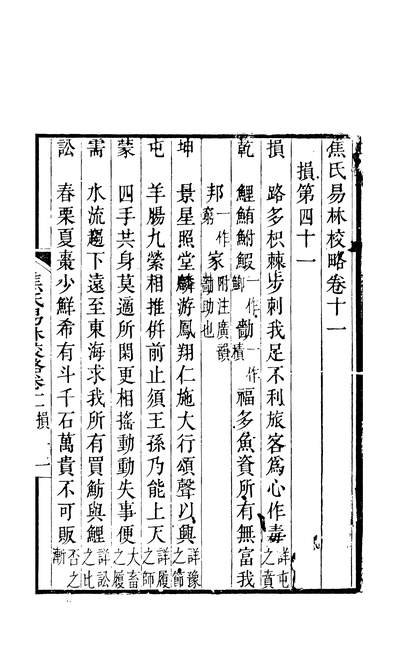 焦氏易林校略卷十一
損第四十一
損 路多枳棘步刺我足不利旅客為心作毒詳屯之賁
乾 鯉鮪鮒鰕一作鯽勸一作積福多魚資所有無富我
邦一作窮家附注廣韻勸助也
坤 景星照堂麟游鳳翔仁施大行頌聲以興詳豫之節
屯 羊腸九縈相推併前止須王孫乃能上天詳履之師
蒙 四手共身莫適所閑更相搖動動失事便大畜之履
需 水流趨下遠至東海求我所有買魴與鯉詳訟之比
訟 春栗夏棗少鮮希有斗千石萬貴不可販否之漸